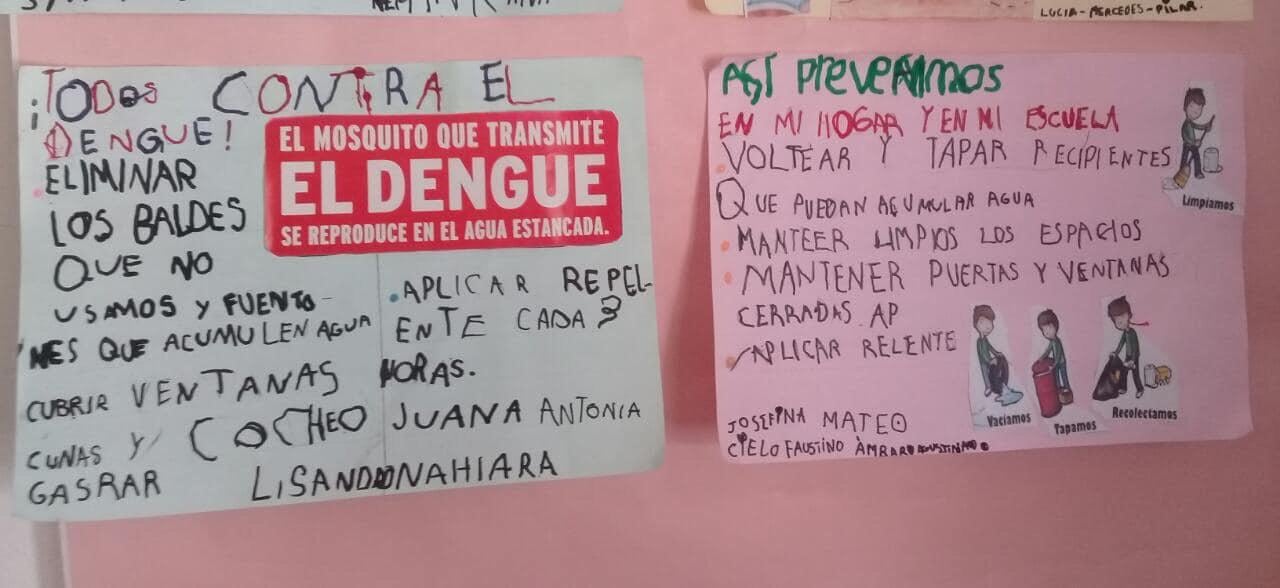 LUCIA-MERCEDES-PILAR.
¡TODOS CONTRA EL
DENGUE!
EL MOSQUITO QUE TRANSMITE
EL DENGUE
SE REPRODUCE EN EL AGUA ESTANCADA.
.ELIMINAR
LOS BALDES
QUE NO
USAMOS Y FUENTO-
NES QUE ACUMULEN AGUA
CUBRIR VENTANAS
CUNAS Y COCHEO
GASRAR
.APLICAR REPEL-
ENTE CADA 3
HORAS.
JUANA ANTONIA
LISANDRO NAHIARA
ASÍ PREVENIMOS
EN MI HOGAR Y EN MI ESCUELA
.VOLTEAR Y TAPAR RECIPIENTES
QUE PUEDAN ACUMULAR AGUA
.MANTEER LIMPIOS LOS ESPACIOS
.MANTENER PUERTAS Y VENTANAS
CERRADAS. AP
.APLICAR RELENTE
Limpiamos
Vaciamos
Tapamos
Recolectamos
JOSEFINA MATEO
CIELO FAUSTINO ÀMBAR